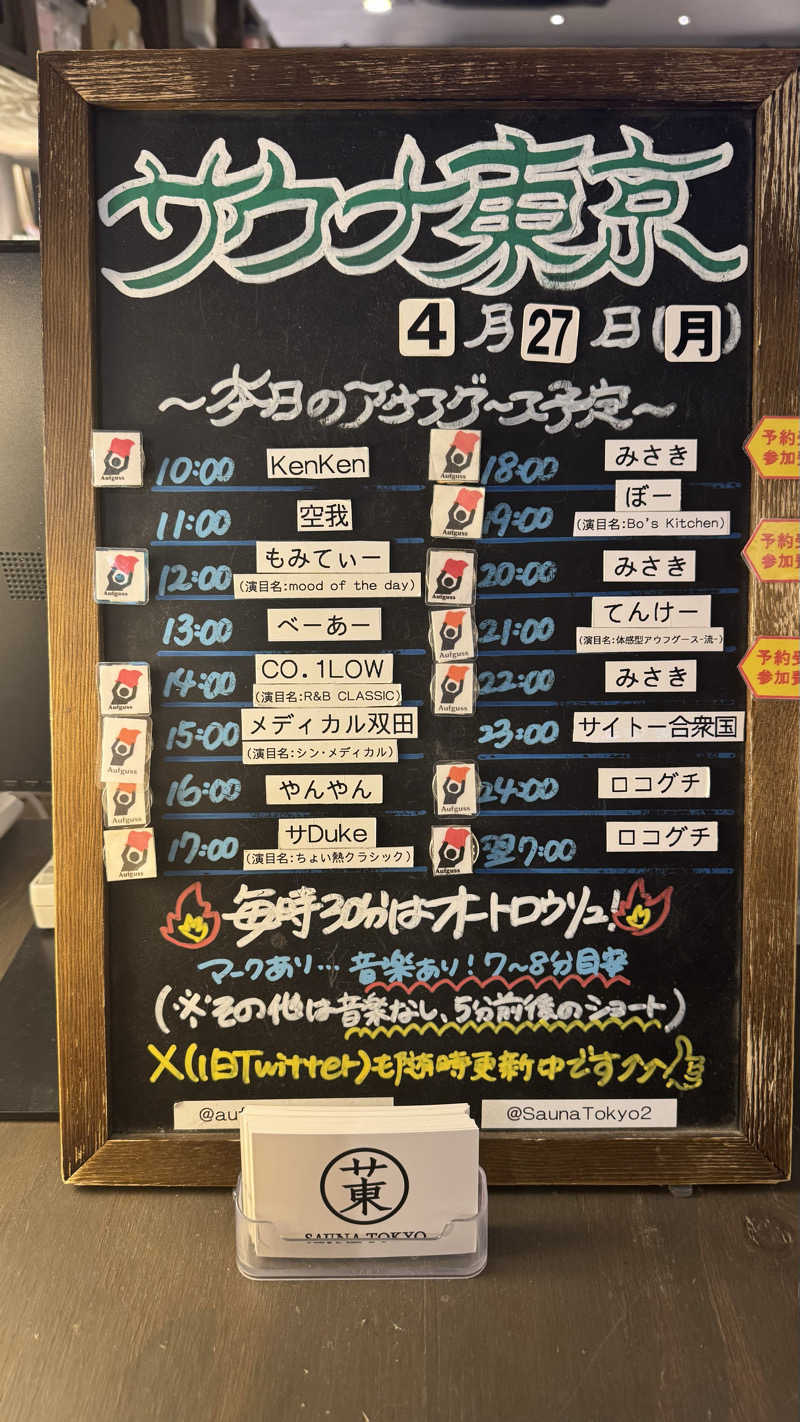 サウナ東京
4月27日(月)
～本日のアウフグース予定～
Aufguss 10:00 KenKen
11:00 空我
Aufguss 12:00 もみてぃー
(演目名:mood of the day)
13:00 べーあー
Aufguss 14:00 CO.1LOW
(演目名:R&B CLASSIC)
Aufguss 15:00 メディカル双田
(演目名:シン・メディカル)
Aufguss 16:00 やんやん
Aufguss 17:00 サDuke
(演目名:ちょい熱クラシック)
Aufguss 18:00 みさき
Aufguss 19:00 ぼー
(演目名:Bo's Kitchen)
Aufguss 20:00 みさき
Aufguss 21:00 てんけー
(演目名:体感型アウフグース-流-)
Aufguss 22:00 みさき
23:00 サイトー合衆国
Aufguss 24:00 ロコグチ
Aufguss 翌7:00 ロコグチ
予約
参加
予約受
参加費
予約受
参加費
毎時30分はオートロウリュ!
マークあり…音楽あり!7～8分目安
(※その他は音楽なし、5分前後のショート)
X(旧Twitter)も随時更新中です↗↗
@SaunaTokyo2
サ東
SAUNA TOKYO